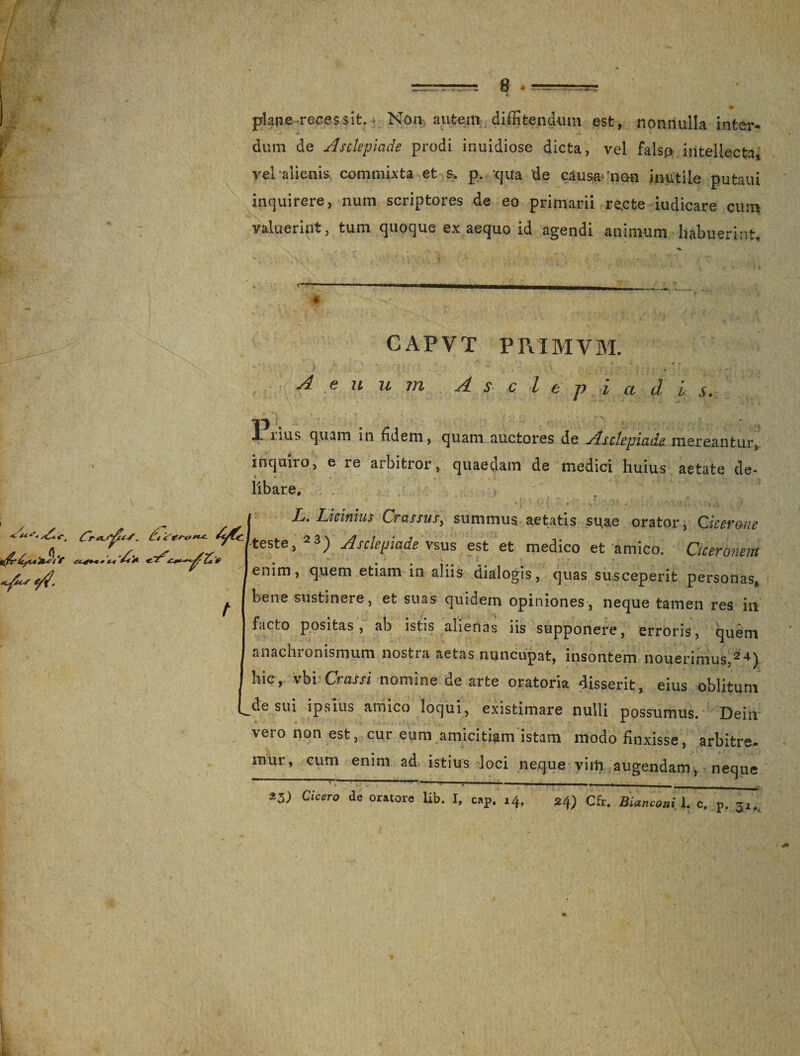 8
plane recessit. Non autem diffitendum est, nonnulla inter-
dum de Asclepiade prodi inuidiose dicta, vel falso intellecta,
vel alienis commixta et s. p. qua de causa non inutile putaui
inquirere, num scriptores de eo primarii recte iudicare cum
valuerint, tum quoque ex aequo id agendi animum habuerint.
CAPVT PRIMVM.
Aeuum Asclepiadis.
Prius quam in fidem, quam auctores de Asclepiade mereantur,
inquiro, e re arbitror, quaedam de medici huius aetate de-
libare.
L. Licinius Crassus, summus aetatis suae orator, Cicerone
teste, 23) Asclepiade vsus est et medico et amico. Ciceronem
enim, quem etiam in aliis dialogis, quas susceperit personas,
bene sustinere, et suas quidem opiniones, neque tamen res in
facto positas, ab istis alienas iis supponere, erroris, quem
anachronismum nostra aetas nuncupat, insontem nouerimus, 24)
hic, vbi Crassi nomine de arte oratoria disserit, eius oblitum
de sui ipsius amico loqui, existimare nulli possumus. Dein
vero non est, cur eum amicitiam istam modo finxisse, arbitre-
mur, cum enim ad istius loci neque vim augendam, neque
23) Cicero de oratore lib. I, cap. 14. 24) Cfr. Bianconi l. c. p. 31.